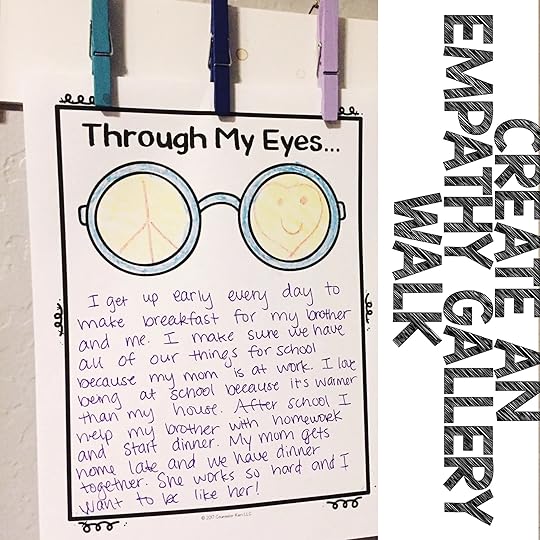 Through My Eyes...
I get up early every day to
make breakfast for my brother
and me. I make sure we have
all of our things for school
because my mom is at work. I love
being at school because its warmer
than my house. After school I
help my brother with homework
and start dinner. My mom gets
home late and we have dinner
together. She works so hard and I
want to be like her!
© 2017 Counselor Keri LLC
CREATE AN
EMPATHY GALLERY
WALK